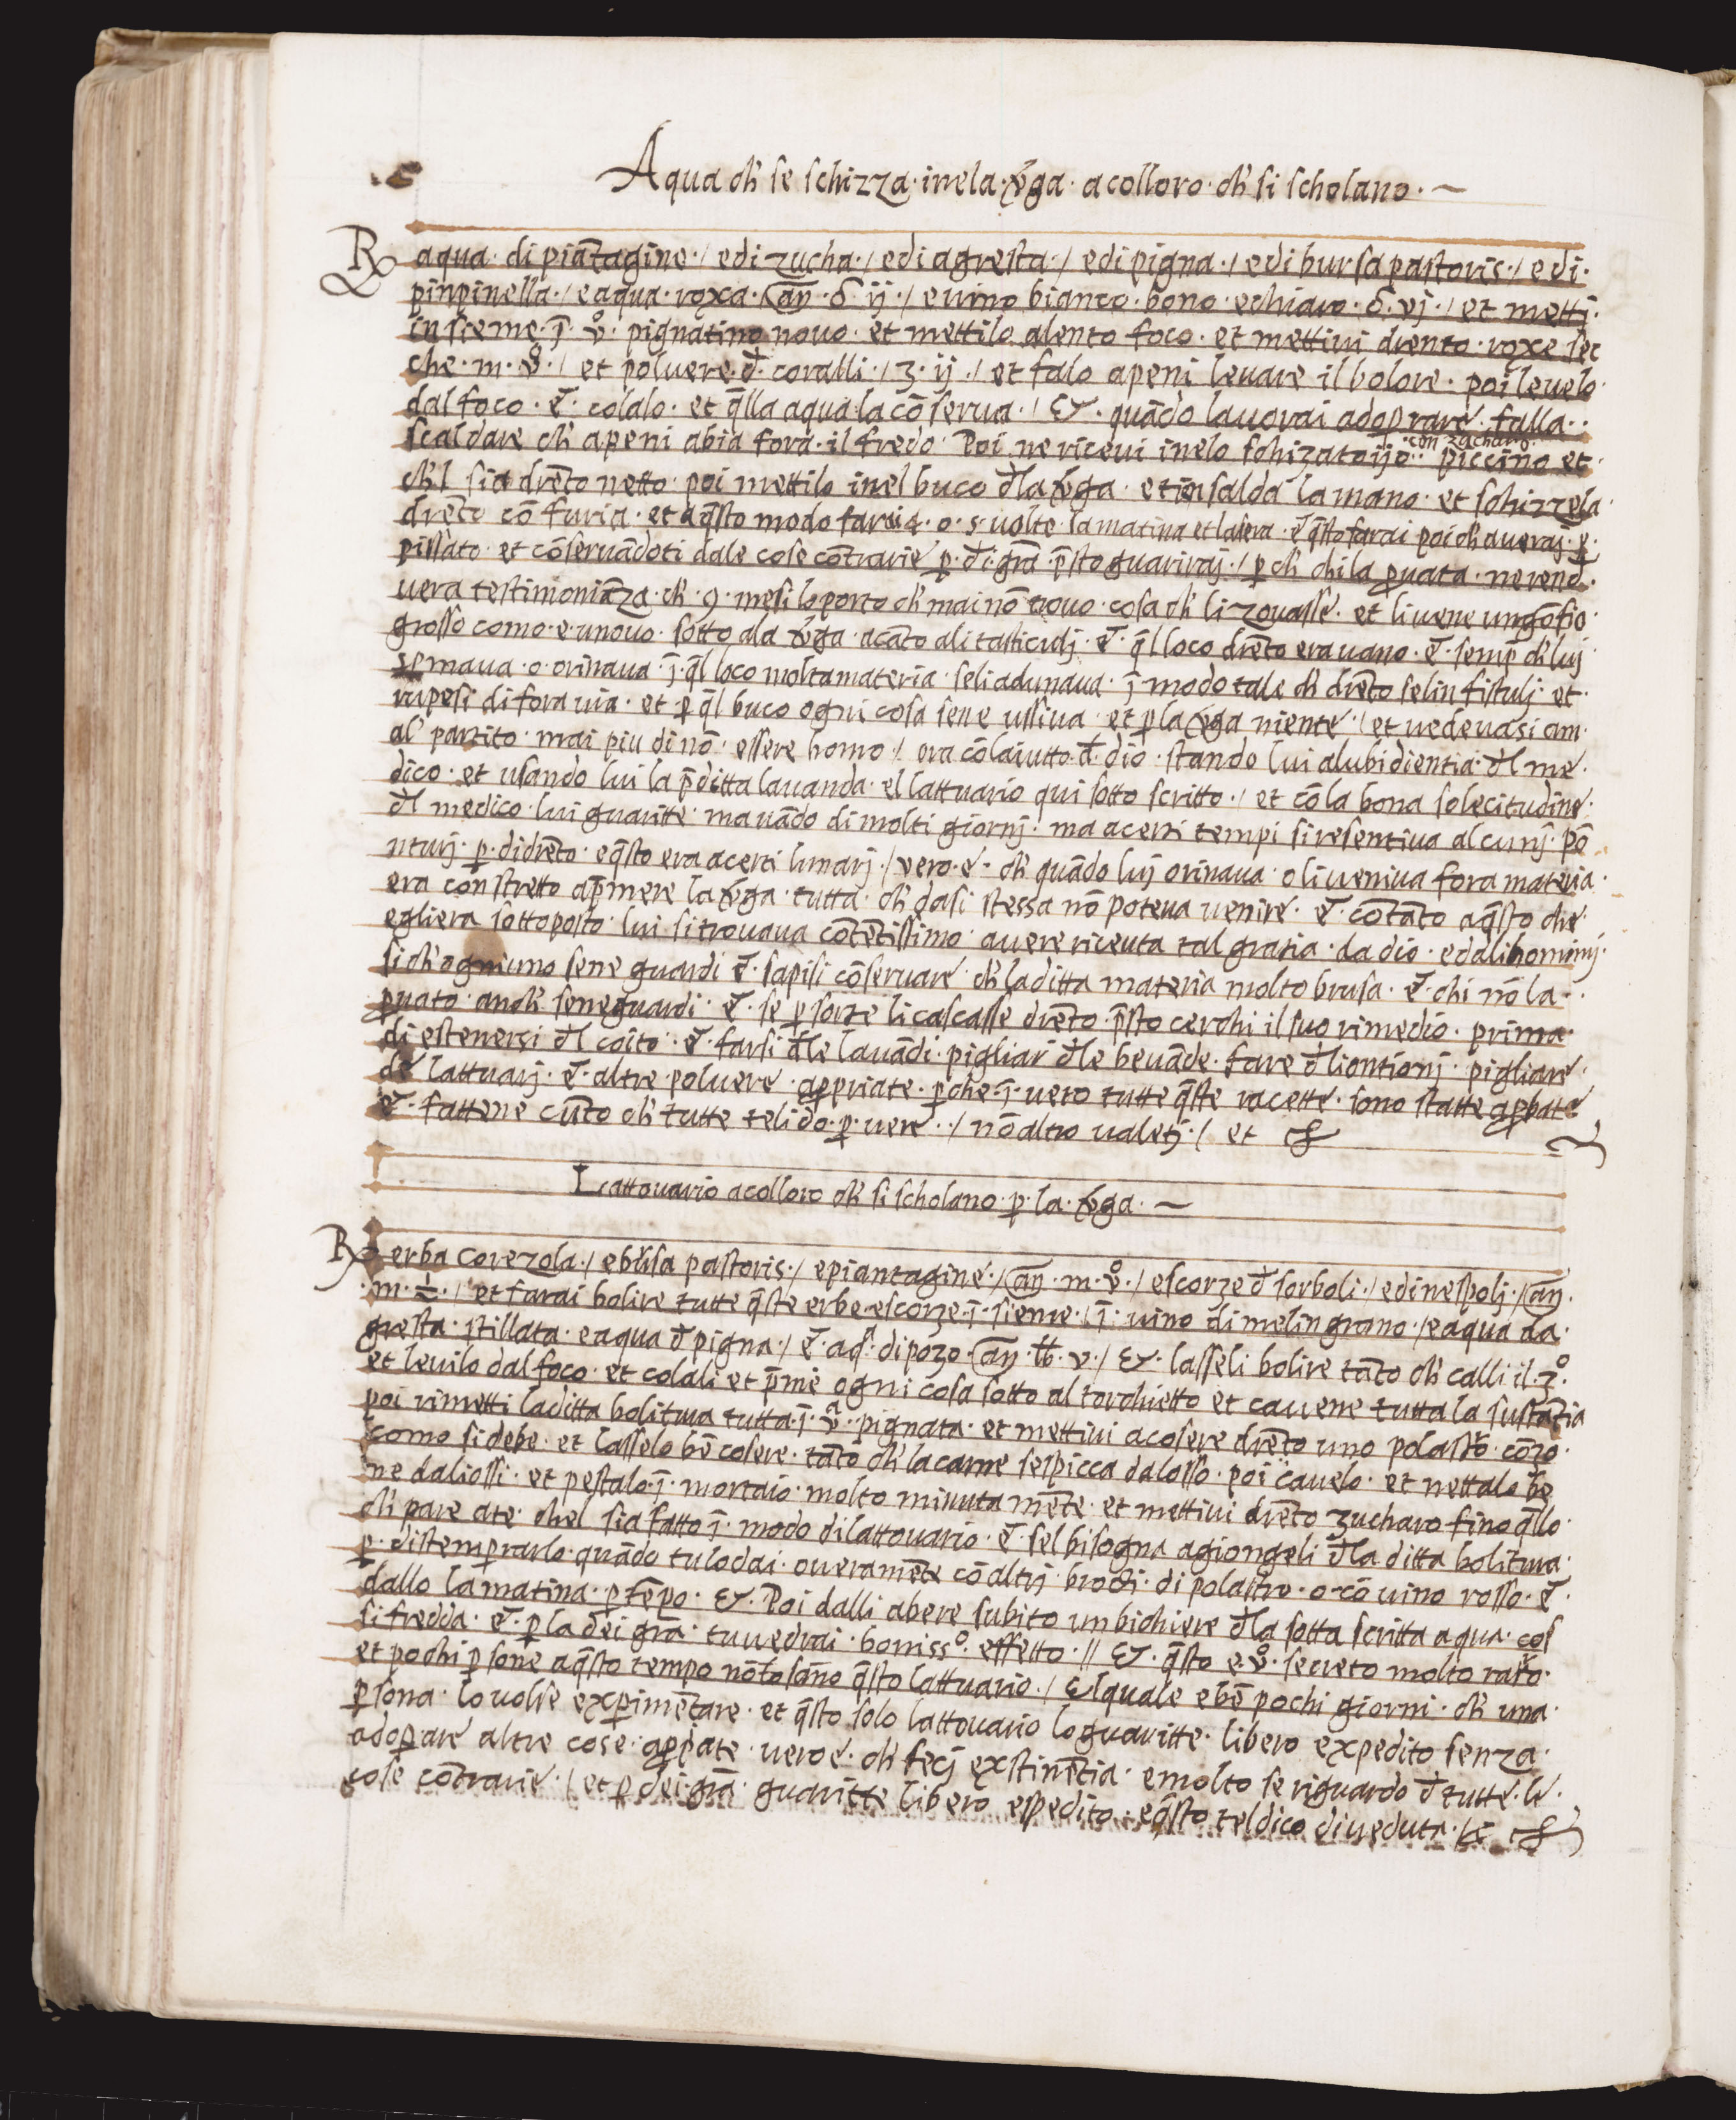 Aqua ch' se schizza· inela· v̄ga· acolloro· ch' si scholano·
℞ aqua· di piātagine·/ edi zucha·/ edi agresta·/ edi pigna·/ edi bursa pastoris·/ edi·
pinpinella·/ e aqua· roxa· añ· ij·/ e uino bianco· bono· echiaro· vj·/ et metti·
insieme· j̄· v̊· pignatino novo· et mettilo alento foco· et mettivi drento· roxe sec
che· m· v̊·/ et polvere· đ· coralli·/ ʒ· ij·/ et falo apeni levare il bolore· poi levelo·
dal foco· ē· colalo· et q̄lla aqua· la cō serva·/ Et· quādo lavorai adoprare· falla··
scaldare ch' apeni abia fora· il fredo· Poi ne ricevi inelo schizatoijo·· con zacharo· piccino et·
ch'l sia drēto netto· poi mettilo inel buco đla v̄ga· etien salda la mano· et schizzela·
drēto cō furia· et aq̄sto modo farai 4· o· 5· volte· la matina et la sera· ē q̄sto farai poi ch averaj· p̱·
pissato· et cōservādoti dale cose cōtrarie· p̱· đi· grā· p̄sto guariraj·/ p̱ ch' chi la p̱vata· ne rend·
vera testimoniāza· ch'· 9· mesi lo porto ch' mai nō trovo· cosa ch' li zovasse· et li vene un gōfio·
grosso como· e· unovo· sotto ala v̄ga· acāto ali tasticulj· ē· q̄l loco drēto era vano· ē· semp̱ ch' luj
spermava· o· orinava· j̄· q̄l loco molta materia· seli adunava· j̄· modo tale ch' drēto selin fistulj· et·
rupesi di fora via· et p̱ q̄l buco ogni cosa sene ussiva· et p̱ la v̄ga niente·/ et vedevasi am·
al' partito· mai piu di nō· essere homo·/ ora cōlaiutto· đ· dio· stando lui alubidientia· đl me·
dico· et usando lui la p̄ditta lavanda· el lattuario qui sotto scritto·/ et cō la bona solecitudine·
đl medico· lui guaritte· ma vādo di molti giornj· ma a certi tempi si resentiva al cunj· pō
nturj· p̱· di drēto· eq̄sto era a certi lunarj·/ vero· e· ch' quādo luj orinava· o li veniva fora materia·
era constretto ap̄mere la v̄ga· tutta· ch' da si stessa nō poteva venire· ē· cōtāto aq̄sto che·
egliera sottoposto· lui si trovava cōtētissimo· avere riceuta tal gratia· da dio· edali hominij·
sich' ogniuno sene guardi ē· sapisi cōservare· ch' la ditta materia molto brusa· ē· chi nō la··
p̱vato· anch' sene guardi· ē· se p̱ sorte li cascasse drēto· p̄sto cerchi il suo rimedio· prima·
di estenersi đl coito· ē· farsi đle lavādi· pigliar' đle bevāde· fare đliontionj· pigliare·
de lattuarj· ē· altre polvere· ap̱priate· p̱che· j̄· vero tutte q̄ste racette· sono statte ap̱bate
ē· fattene cūto ch' tutte teli do· p̱· vere··/ nō altro valetj·/ et
Lattovario acolloro ch' si scholano· p̱· la· v̄ga·
℞ erba corezola·/ ebūsa pastoris·/ epiantagine·/ añ· m· v̊·/ escorze đ sorboli·/ edi nespolj·/ añ·
·m· ÷·/ et farai bolire tutte q̄ste erbe· escorze· j̄· sieme·/ j̄· vino di melin grano·/ eaqua da·
gresta· stillata· eaqua đ pigna·/ ē· aqª· di pozo· añ· ℔· v·/ Et· lasseli bolire tāto ch' calli il· 2°·
et levilo dal foco· et colali et p̄mē ogni cosa sotto al torchietto et cavene tutta la sustātia
poi rimetti la ditta bolitura tutta· j̄· vª· pignata· et mettivi acosere drēto uno polastro· cōzo·
como si debe· et lasselo bē cosere· tāto ch' la carne sespicca dalosso· poi cavelo· et nettalo be
ne daliossi· et pestalo· j̄· mortaio· molto minuta mēte· et mettivi drēto zucharo fino q̄llo·
ch' pare ate· chel sia fatto j̄· modo dilattovario· ē· sel bisogna agiongeli đla ditta bolitura·
p̱· distemprarlo· quādo tu lo dai· overamēte cō altrj· brodi· di polastro· o· cō vino rosso· ē·
dallo la matina· p̱tēpo· Et· Poi dalli abere subito un bichiere đla sotta scritta aqua· cos
si fredda· ē· p̱ la dei grā· tu vedrai· boniss°· effetto·// Et· q̄sto e· v̊· secreto molto raro·
et pochi p̱ sone aq̄sto tempo nō lo sāno q̄sto lattuario·/ Elquale e bē pochi giorni· ch' una·
p̱sona· lo volse exp̱imētare· et q̄sto solo lattovario lo guaritte· libero expedito senza·
adop̱are altre cose· ap̱pate· vero e· ch' fecj exstinētia· emolto se riguardo đ tutte· le·
cose cōtrarie·/ et p̱ dei· grā· guaritte libero espedito· eq̄sto tel dico di veduta·